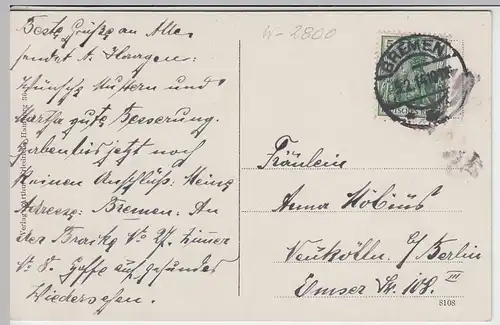 Beste Grüße an Alle
sendet A. Haagen:
Wünsche Muttern und
Martha gute Besserung.
haben bis jetzt noch
keinen Anschlüß: Meine
Adresse: Bremen: An
der Braike No 27. Zimmer
No 8. Hoffe auf gesundes
Wiedersehen.
W-2800
BREMEN
Fräulein
Anna Möbius
Neükölln b/ Berlin
Emser Str. 108. III
8108